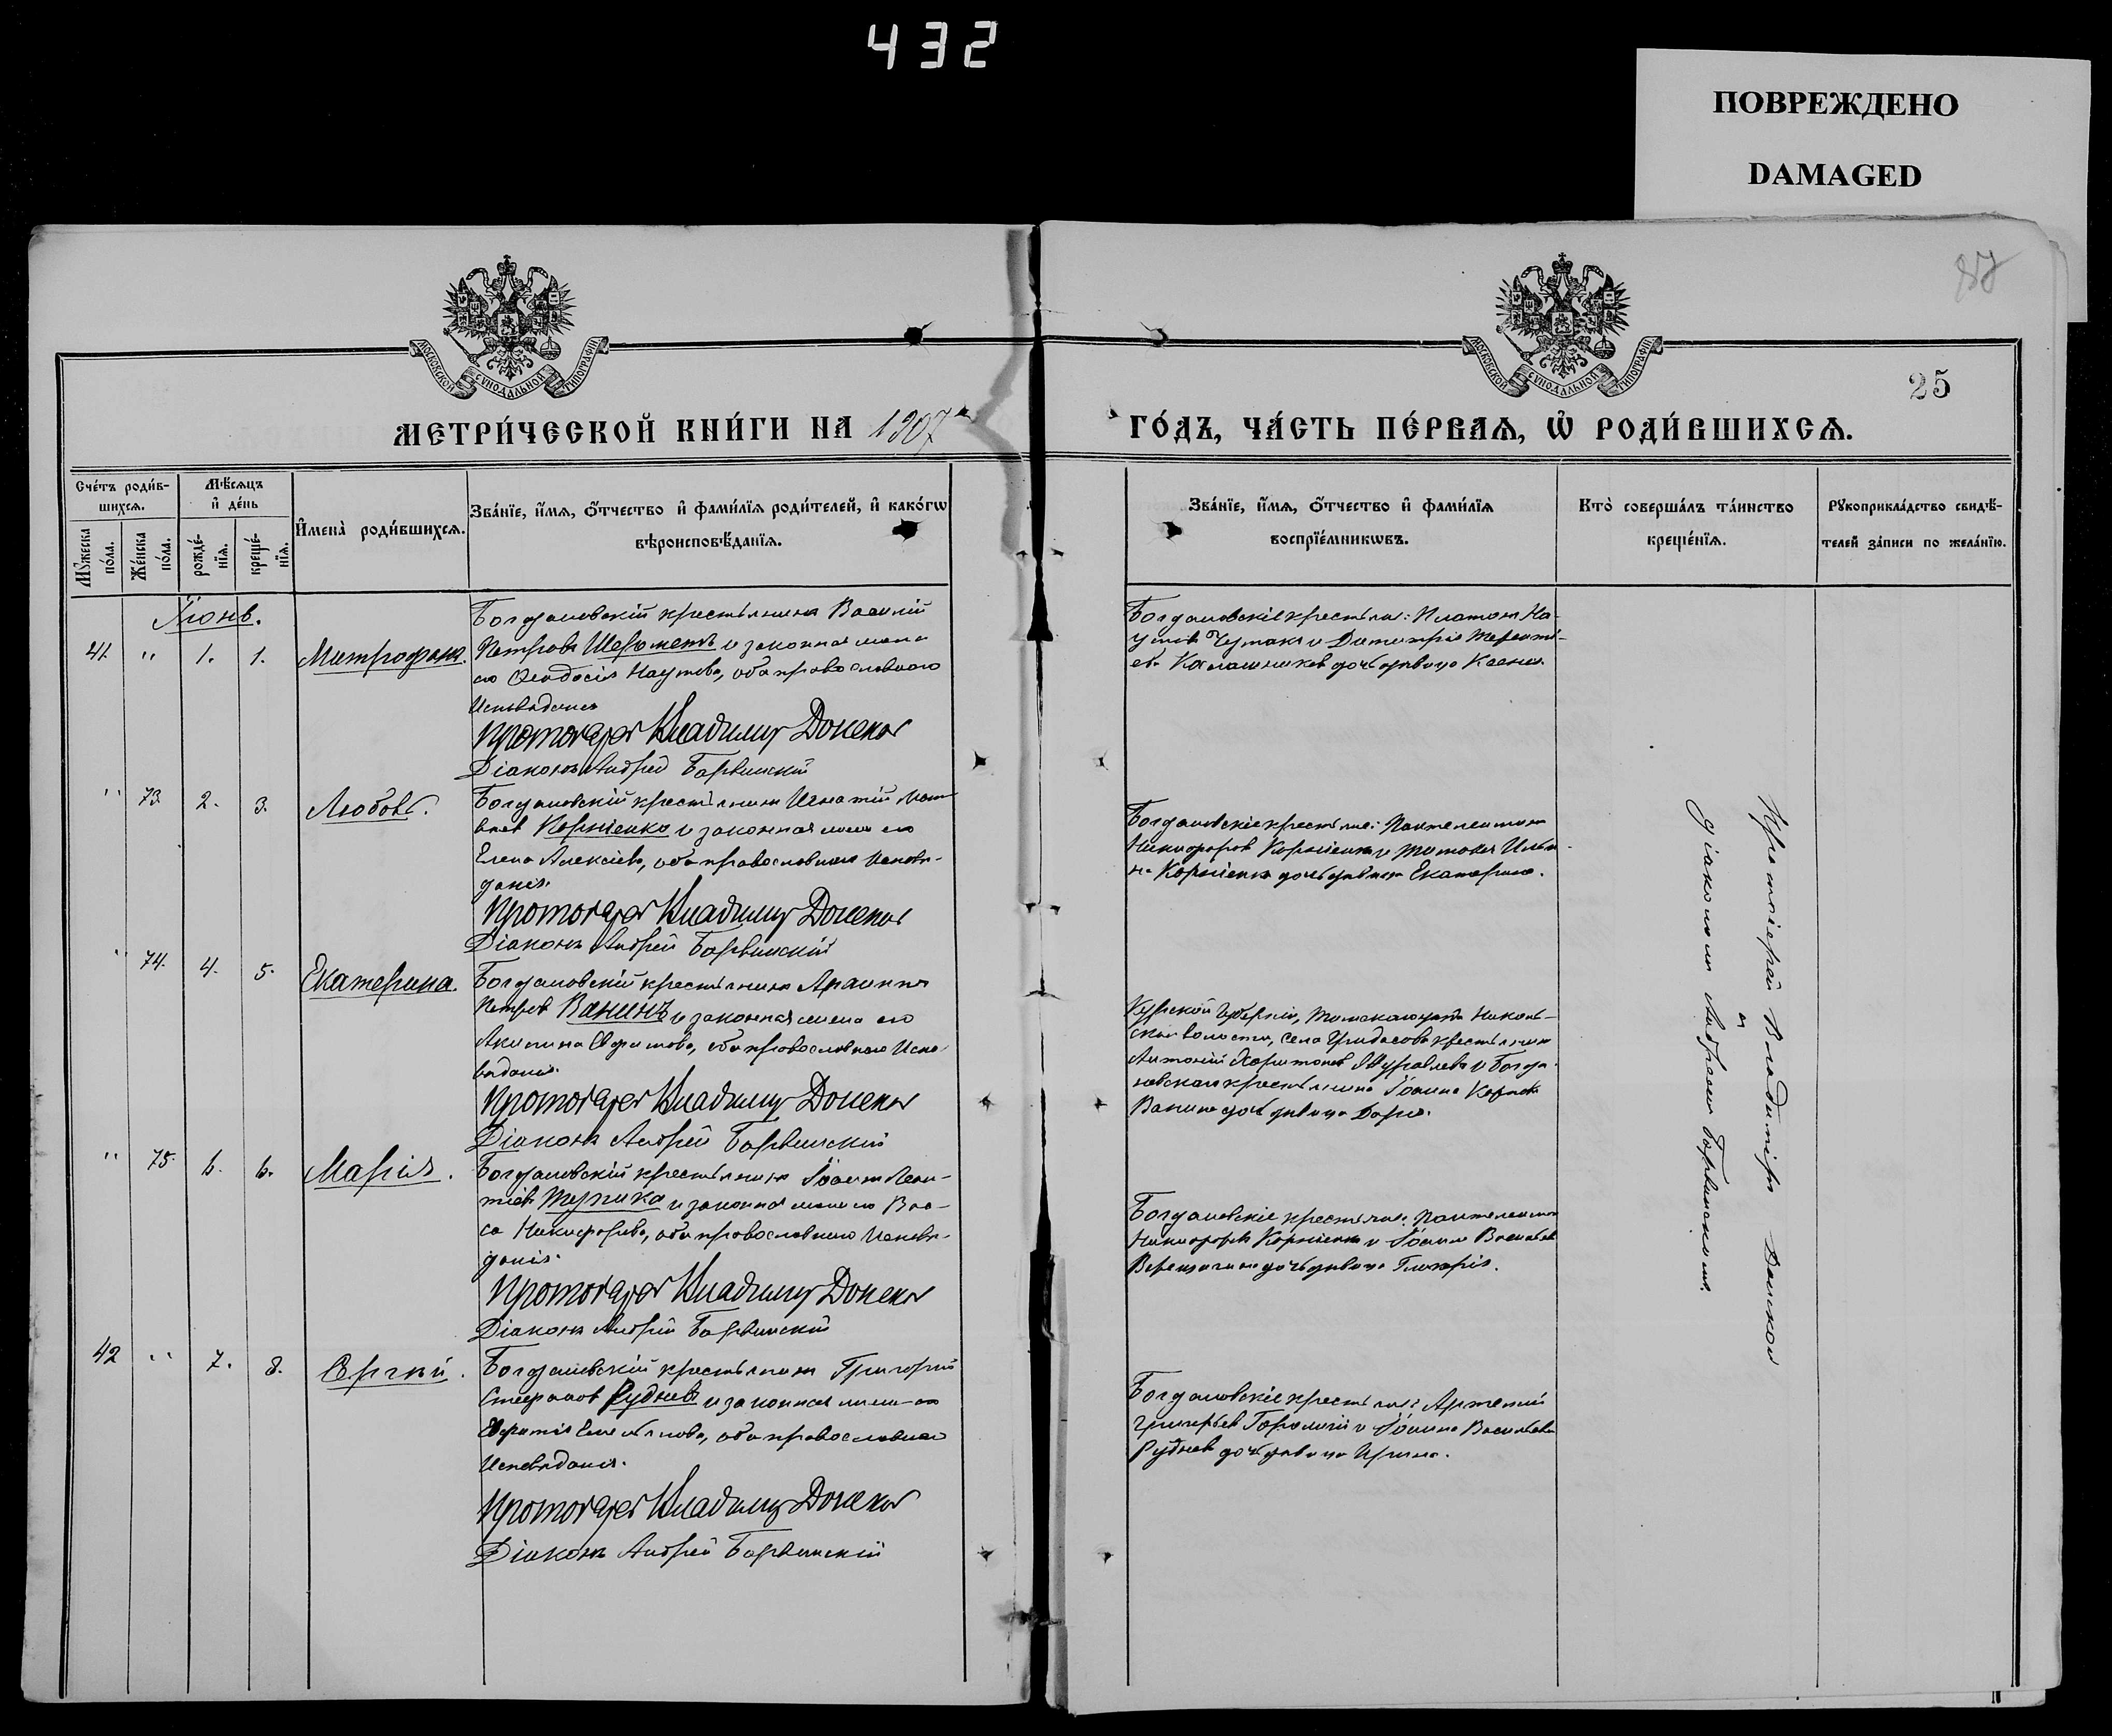 432
ПОВРЕЖДЕНО
DAMAGED
87
25
МОСКОВСКОЙ СѴНОДАЛЬНОЙ ТИПОГРАФІИ
МОСКОВСКОЙ СѴНОДАЛЬНОЙ ТИПОГРАФІИ
МЕТРИ́ЧЕСКОЙ КНИ́ГИ НА 1907
ГО́ДЪ, ЧА́СТЬ ПЕ́РВАѦ, Ѡ҆ РОДИ́ВШИХСѦ.
Сче́тъ роди́в-
шихсѧ.
Мꙋ́жеска по́ла.
Же́нска по́ла.
Мѣ́сѧцъ
и҆ де́нь
рожде́-
нїѧ.
креще́-
нїѧ.
И҆мена̀ роди́вшихсѧ.
Зва́нїе, и҆́мѧ, ѻ҆́тчество и҆ фами́лїѧ роди́телей, и҆ како́гѡ
вѣроисповѣ́данїѧ.
Зва́нїе, и҆́мѧ, ѻ҆́тчество и҆ фами́лїѧ
воспрїе́мникѡвъ.
Кто̀ соверша́лъ та́инство
креще́нїѧ.
Рꙋкоприкла́дство свидѣ́-
телей за́писи по жела́нїю.
Іюнь.
41. " 1. 1. Митрофанъ.
Богдановскій крестьянинъ Василій
Петровъ Шереметъ и законная жена
его Ѳеодосія Наумова, оба православнаго
Исповѣданія
Протоіерей Владимір Донсков
Діаконъ Андрей Барвинскій
Богдановскіе крестьяне: Платонъ На-
умовъ Чумакъ и Димитрія Теренті-
ева Калашникова дочь дѣвица Ксенія.
" 73. 2. 3. Любовь.
Богдановскій крестьянинъ Игнатій Мат-
вѣевъ Корніенко и законная жена его
Елена Алексіева, оба православнаго Исповѣ-
данія.
Протоіерей Владимір Донсков
Діаконъ Андрей Барвинскій
Богдановскіе крестьяне: Пантелеимонъ
Никифоровъ Корніенко и
Корніенко дочь дѣвица Екатерина.
" 74. 4. 5. Екатерина.
Богдановскій крестьянинъ
Петровъ Ванинъ и законная жена его
Акилина Ефимова, оба православнаго Испо-
вѣданія.
Протоіерей Владимір Донсков
Діаконъ Андрей Барвинскій
Курской губерніи, Николь-
ской волости, села крестьянинъ
Антоній Харитоновъ Журавлевъ и Богда-
новскаго крестьянина Іоанна
Ванина дочь дѣвица Дарія.
" 75. 6. 6. Марія.
Богдановскій крестьянинъ Іоаннъ Леон-
тіевъ Тупика и законная жена его Вас-
са Никифорова, оба православнаго Исповѣ-
данія.
Протоіерей Владимір Донсков
Діаконъ Андрей Барвинскій
Богдановскіе крестьяне: Пантелеимонъ
Никифоровъ Корніенко и Іоанна Васильева
Верещагина дочь дѣвица Гликерія.
42 " 7. 8. Сергѣй.
Богдановскій крестьянинъ Григорій
Стефановъ Рудневъ и законная жена его
Евфимія Емельянова, оба православнаго
Исповѣданія.
Протоіерей Владимір Донсков
Діаконъ Андрей Барвинскій
Богдановскіе крестьяне: Артемій
Григорьевъ и Іоанна Васильева
Руднева дочь дѣвица Ирина.
Протоіерей Владиміръ Донсков
и
діакономъ Андреем Барвинскимъ.